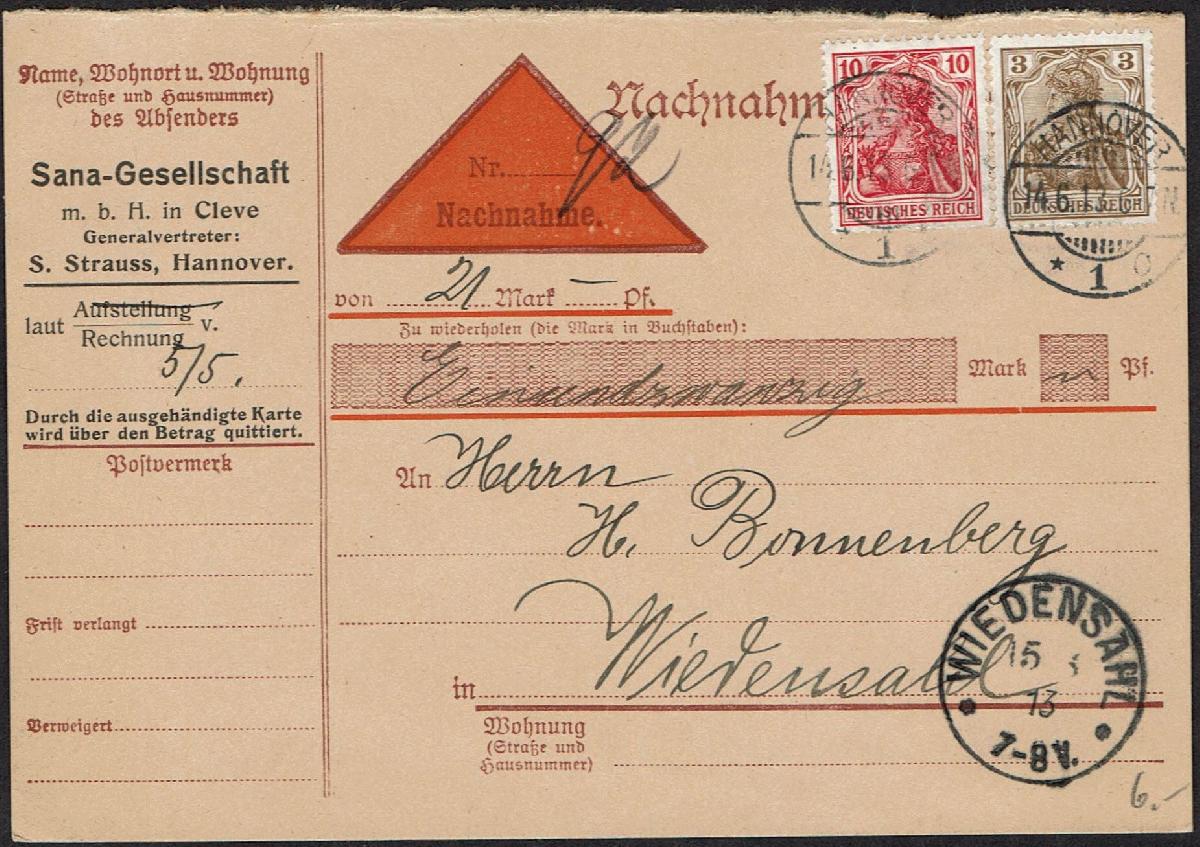 Name, Wohnort u. Wohnung
(Straße und Hausnummer)
des Absenders
Sana-Gesellschaft
m. b. H. in Cleve
Generalvertreter:
S. Strauss, Hannover.
laut Aufstellung v.
Rechnung
5/5.
Durch die ausgehändigte Karte
wird über den Betrag quittiert.
Postvermerk
Frist verlangt
Verweigert
Nachnahm
Nr.
Nachnahme.
10 10
DEUTSCHES REICH
3 3
DEUTSCHES REICH
HANNOVER
14.6.13
1
HANNOVER
14.6.13
* 1
von 21 Mark — Pf.
Zu wiederholen (die Mark in Buchstaben):
Einundzwanzig Mark Pf.
An Herrn
H. Bonnenberg
in Wiedensahl
Wohnung
(Straße und
Hausnummer)
WIEDENSAHL
15
13
7-8 V.
6.-